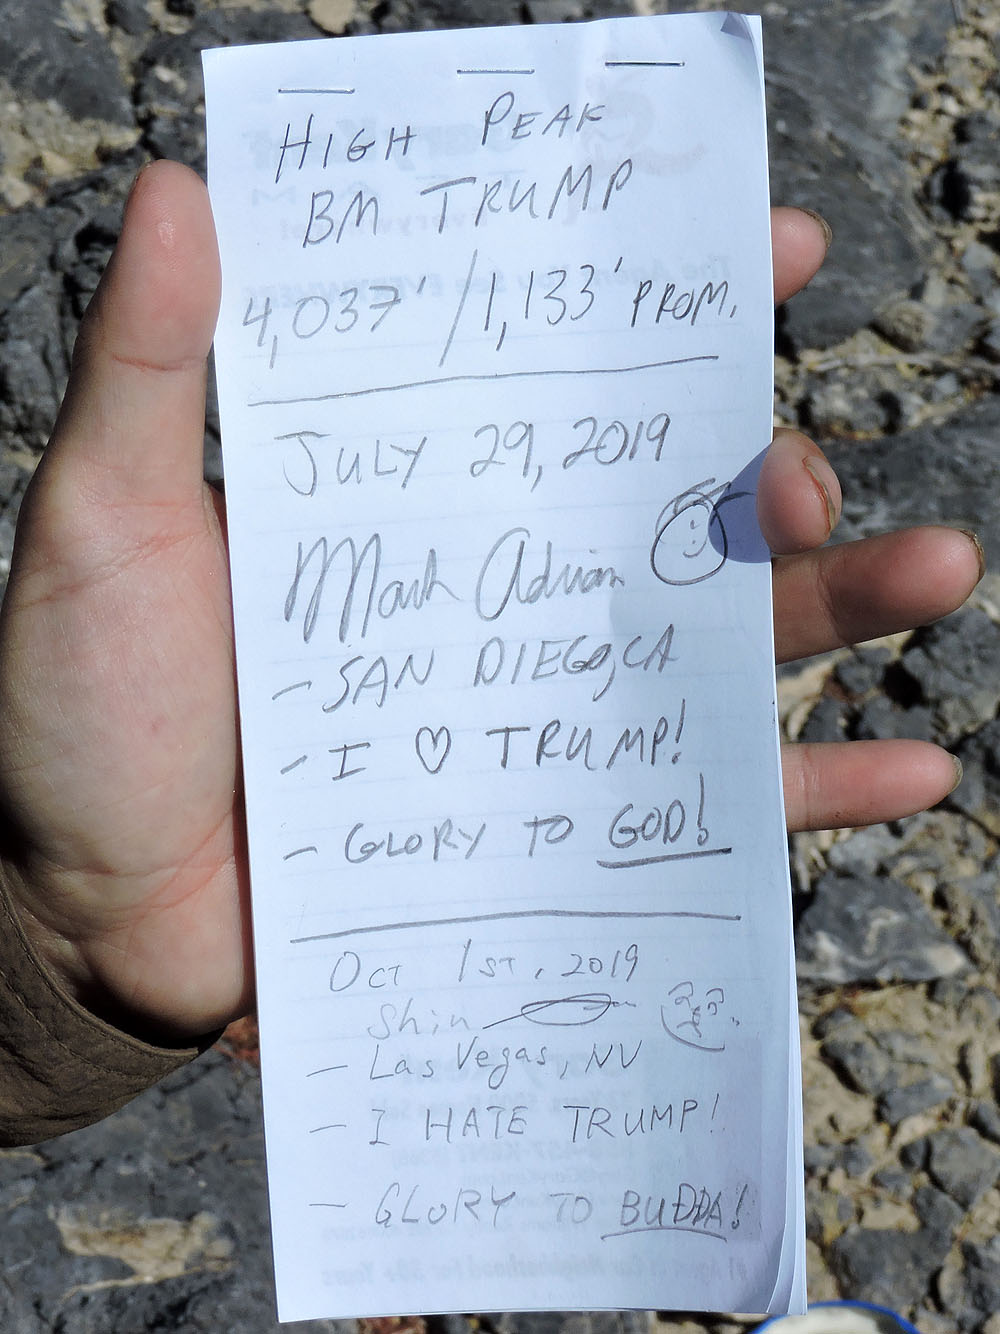 HIGH PEAK
BM TRUMP
4,037' / 1,133' PROM.
JULY 29, 2019
Mark Adrian
- SAN DIEGO, CA
- I ♡ TRUMP!
- GLORY TO GOD!
OCT 1ST, 2019
Shin
- Las Vegas, NV
- I HATE TRUMP!
- GLORY TO BUDDA!